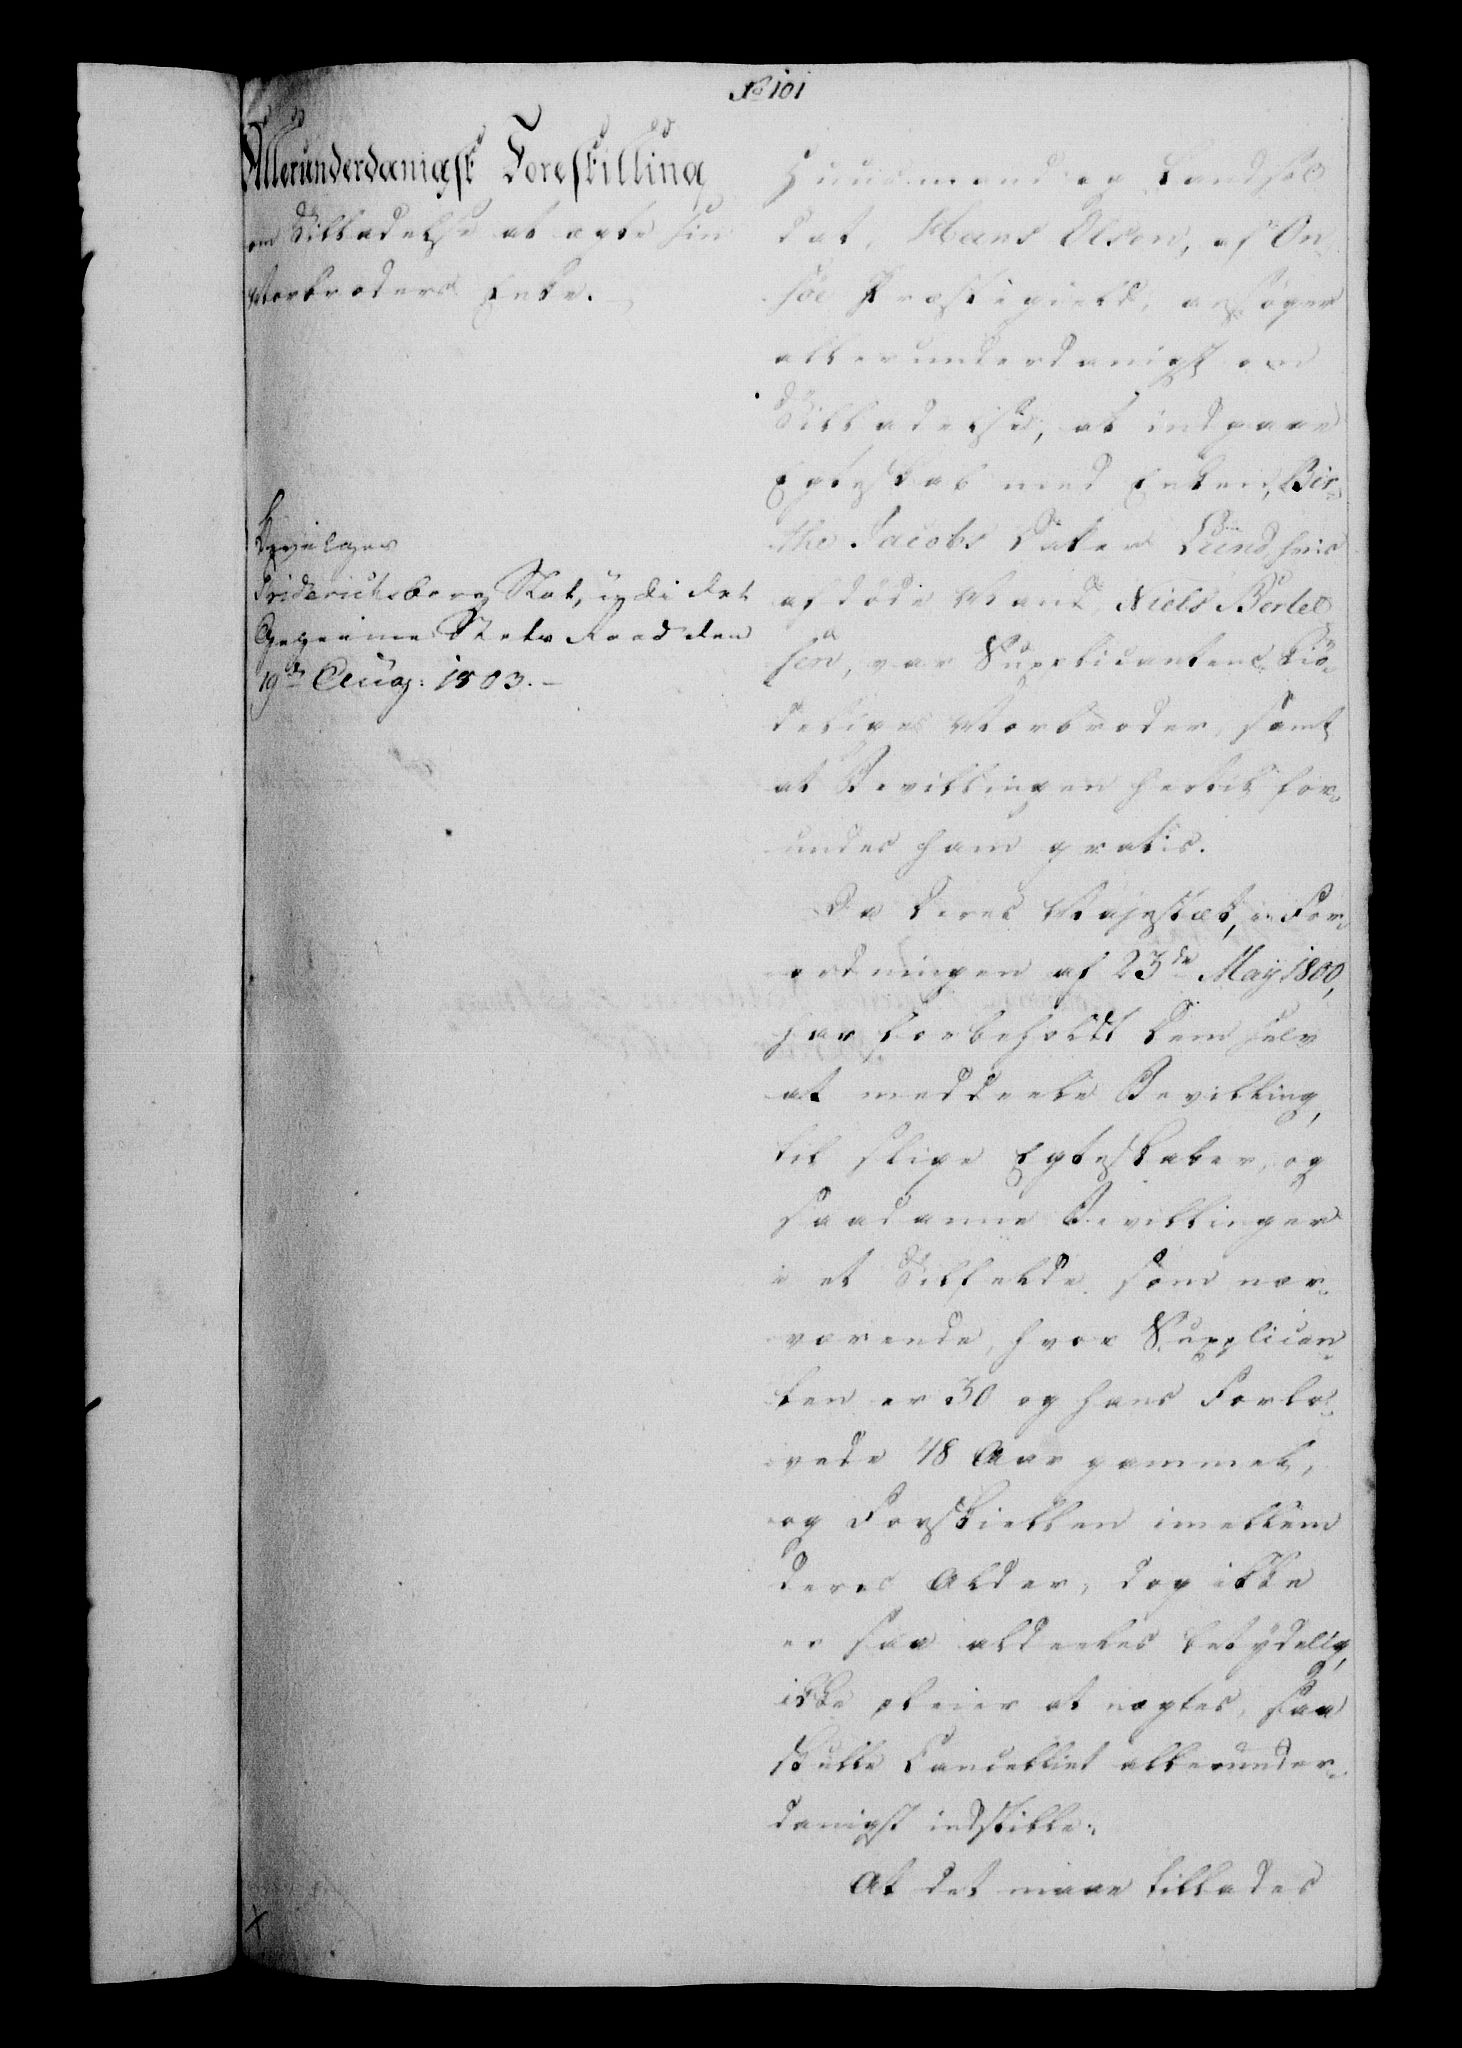 No 101
Allerunderdanigst Forestilling
om Tilladelse at ægte sin
Morbroders Enke.
Bevilges
Friderichsberg Slot, udi det
Geheime Stats Raad den
19de Aug: 1803.
Huusmand og Landsol¬
dat, Hans Olsen, af On¬
söe Præstegield, ansøger
allerunderdanigst om
Tilladelse, at indgaae
Egteskab med Enken, Bir¬
the Jacobs Datter Lund, hvis
afdöde Mand, Niels Bertel
sen, var Supplicantens kiö¬
deliges Morbroder, samt
at Bevillingen hertil for¬
undes ham gratis.
Da Deres Majestæt, i For¬
ordningen af 23de May 1800,
har forbeholdt Dem selv
at meddeele Bevilling,
til slige Egteskaber, og
saadanne Bevillinger
i et Tilfelde som nær¬
værende, hvor Supplican¬
ten er 30 og hans Forlo¬
vede 48 Aar gammel,
og Forskiellen imellem
deres Alder, dog ikke
er saa aldeeles betydelig,
ikke pleier at nægtes, saa
skulle Cancelliet allerunder¬
danigst indstille:
At det maae tillades